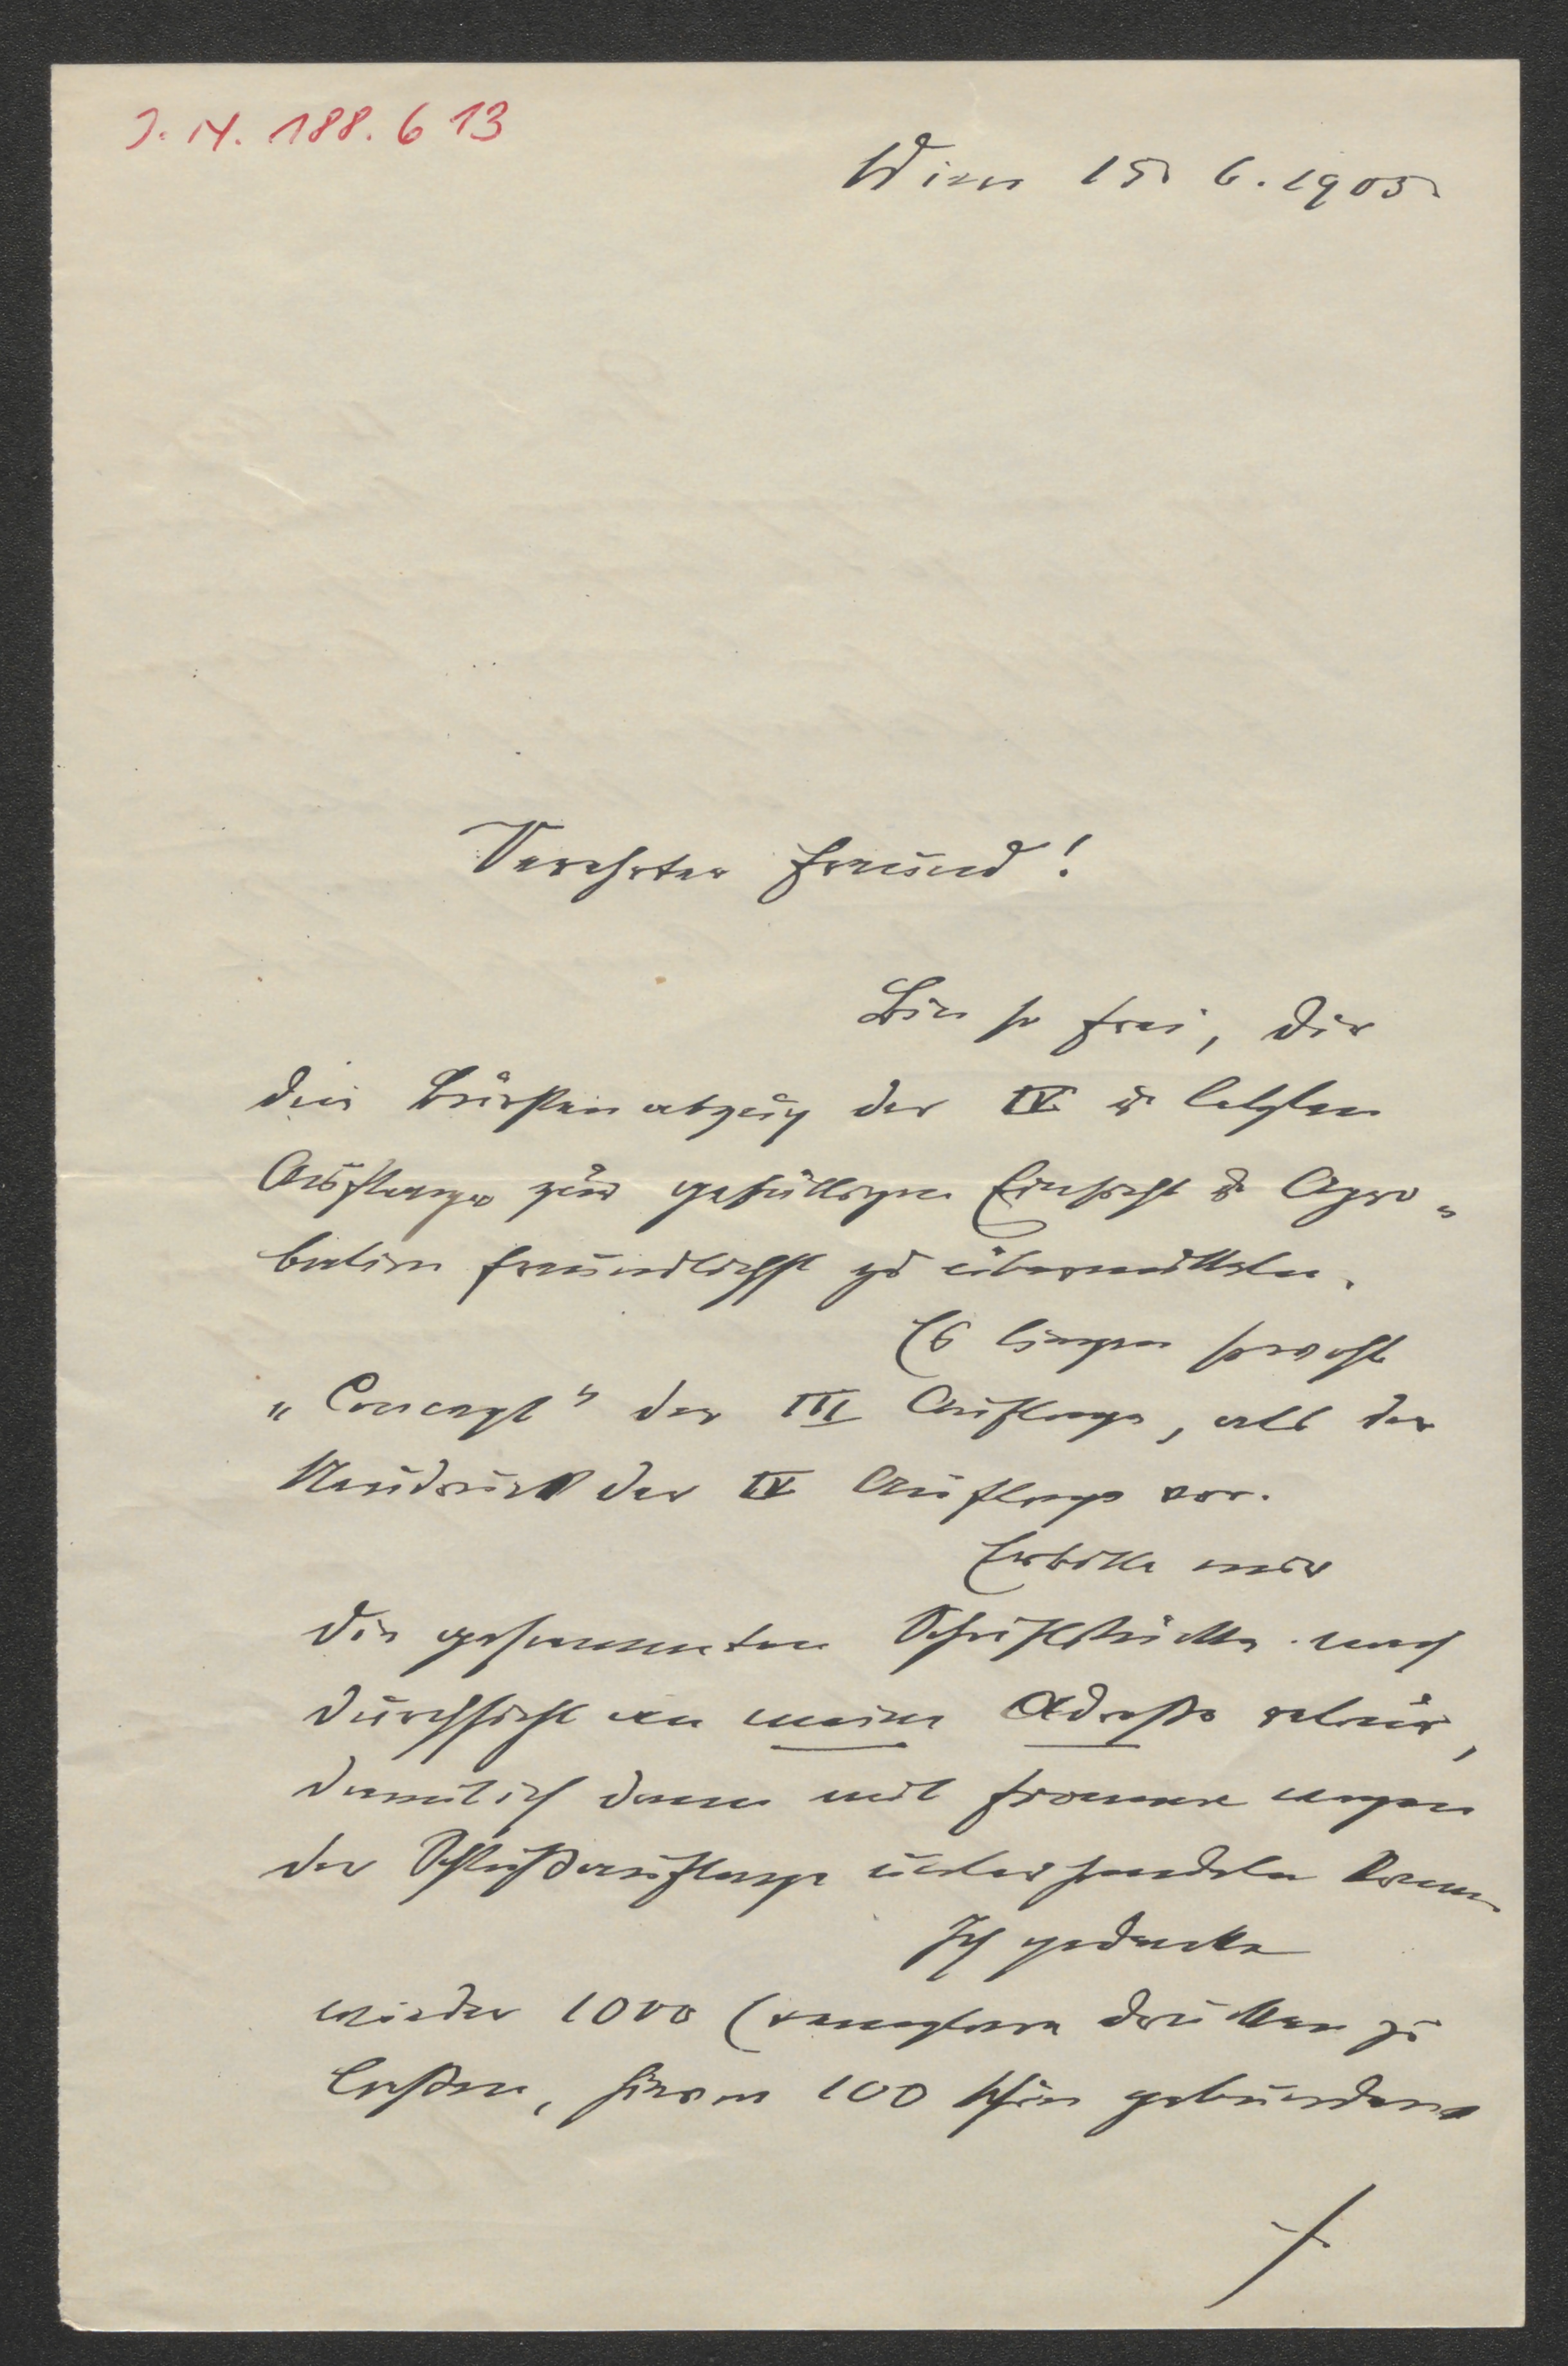 J. N. 188.613
Wien 15. 6. 1905.
Verehrter Freund!
Bin so frei, Dir
den Bürstenabzug der IV u letzten
Auflage zur gefälligen Einsicht u Appro„
bation freundlichst zu übermitteln.
Es liegen sowohl
„Concept" der III Auflage, als der
Neudruck der IV Auflage vor.
Erbitte mir
die gesammten Schriftstücke nach
Durchsicht an meine Adresse retour,
damit ich dann mit wegen
der Schlußauflage unterhandeln kann.
Ich gedenke
wieder 1000 Exemplare drucken zu
laßen, hievon 100 schön gebunden